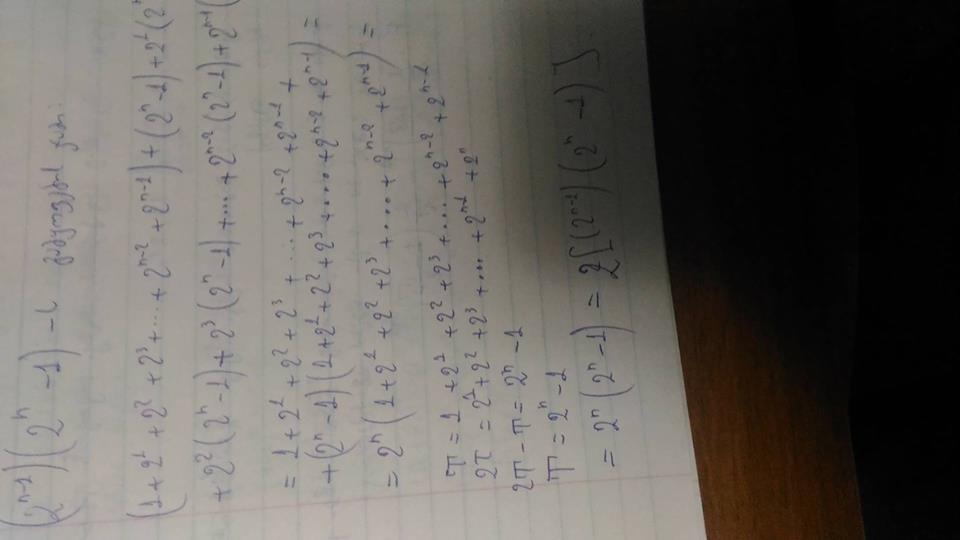 (2ⁿ⁻¹)(2ⁿ-1) - ს გამყოფების ჯამი:
(1+2¹+2²+2³+...+2ⁿ⁻²+2ⁿ⁻¹)+(2ⁿ-1)+2¹(2ⁿ
+2²(2ⁿ-1)+2³(2ⁿ-1)+....+2ⁿ⁻²(2ⁿ-1)+2ⁿ⁻¹(
= 1+2¹+2²+2³+....+2ⁿ⁻²+2ⁿ⁻¹+
+(2ⁿ-1)(1+2¹+2²+2³+....+2ⁿ⁻²+2ⁿ⁻¹)=
=2ⁿ(1+2¹+2²+2³+....+2ⁿ⁻²+2ⁿ⁻¹)=
T=1+2¹+2²+2³+....+2ⁿ⁻²+2ⁿ⁻¹
2T=2¹+2²+2³+....+2ⁿ⁻¹+2ⁿ
2T-T=2ⁿ-1
T=2ⁿ-1
= 2ⁿ(2ⁿ-1) = 2[(2ⁿ⁻¹)(2ⁿ-1)]